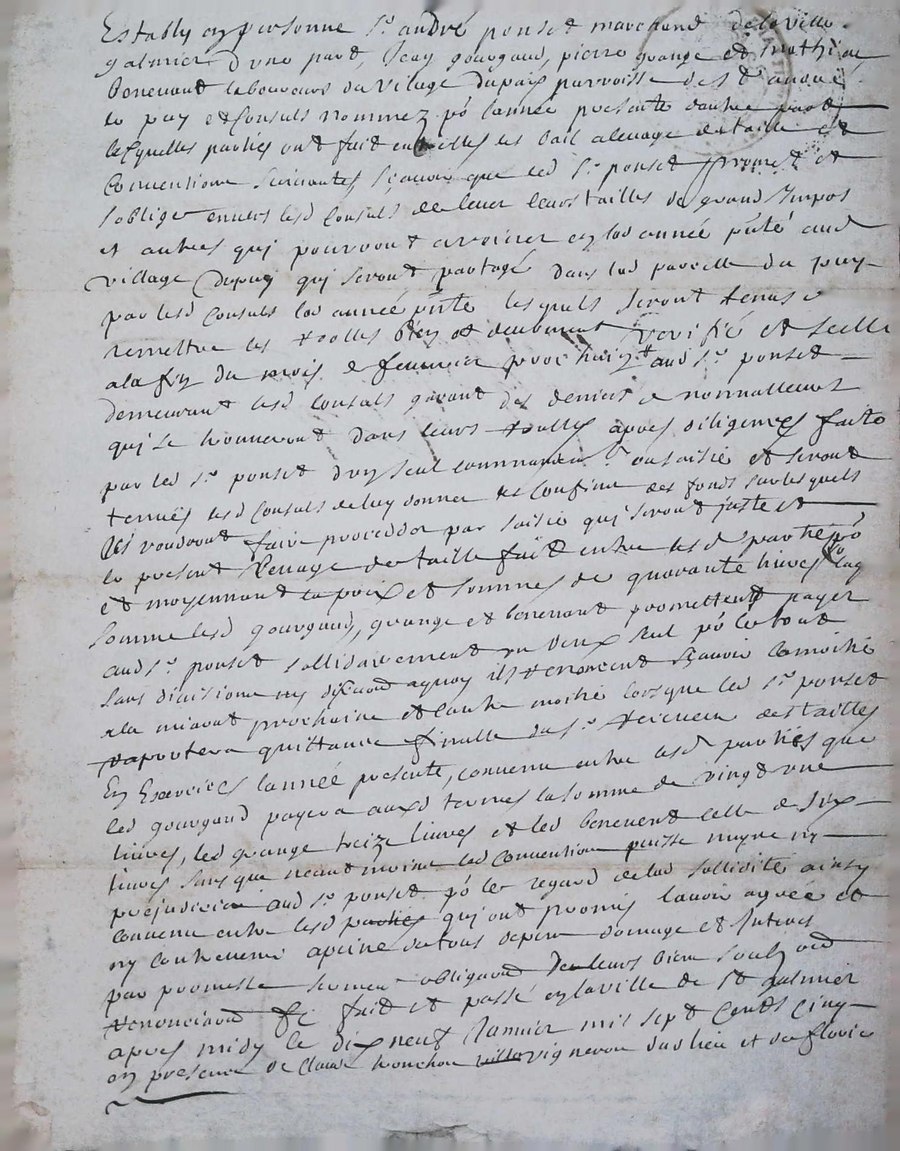 Estably en personne Sr. andré ponset marchand de la ville
galmier d'une part, Jean gourgaud, pierre grange et mathieu
Benevant laboureurs du village dupuis parroisse de St
le puy et Consuls nommez po lannée presente dautre part
lesquelles parties ont fait entrelles les bail alevage de taille et
Conventions suivantes sçavoir que led Sr. ponset promet et
soblige envers lesd Consuls de lever leurs tailles de grand Impos
et autres qui pourront arriver en lad année pnte aud
village Dupuy qui seront partagé dans lad parcelle du puy
par lesd Consuls lad année pnte lesquels seront tenus
remettre les roolles bien et deubment verifié et scellé
a la fin du mois de fevrier prochain aud Sr. ponset
demeurant lesd Consuls garant des deniers a nonvalleur
qui se trouveront dans leurs roolles apres diligences faite
par led Sr. ponset d'un seul commandemt. ou saisie et seront
tenues lesd Consuls de luy donner les Confins des fonds sur lesquels
Ils voudront faire proceder par saisie qui seront juste et
le present levage de taille fait entre lesd parties po
et moyennant le prix et somme de quarante livres laq
somme lesd gourgaud, grange et benevant promettent payer
aud Sr. ponset sollidairement un deux seul po le tout
sans division ny discution aquoy ils renoncent sçavoir la moitié
a la miaout prochaine et lautre moitié lorsque led Sr. ponset
raportera quittance finalle du Sr. receveur des tailles
En Exercice lannée presente, convenu entre lesd parties que
led gourgaud payera auxd termes la somme de vingt une
livres, led grange treize livres et led benevent celle de six
livres sans que neantmoins lad Convention puisse nuyre ny
prejudicier aud Sr. ponset po le regard de lad sollidité ainsy
convenu entre lesd parties qui ont promis lavoir agreé et
ny contrevenir apeine de tous depens domage et Interest
par promesse serment obligaon de leurs biens
renonciaon &c fait et passé en la ville de St galmier
apres midy le dix neuf Janvier mil sept Cents Cinq
en presence de Claude tronchon vigneron dud lieu et de